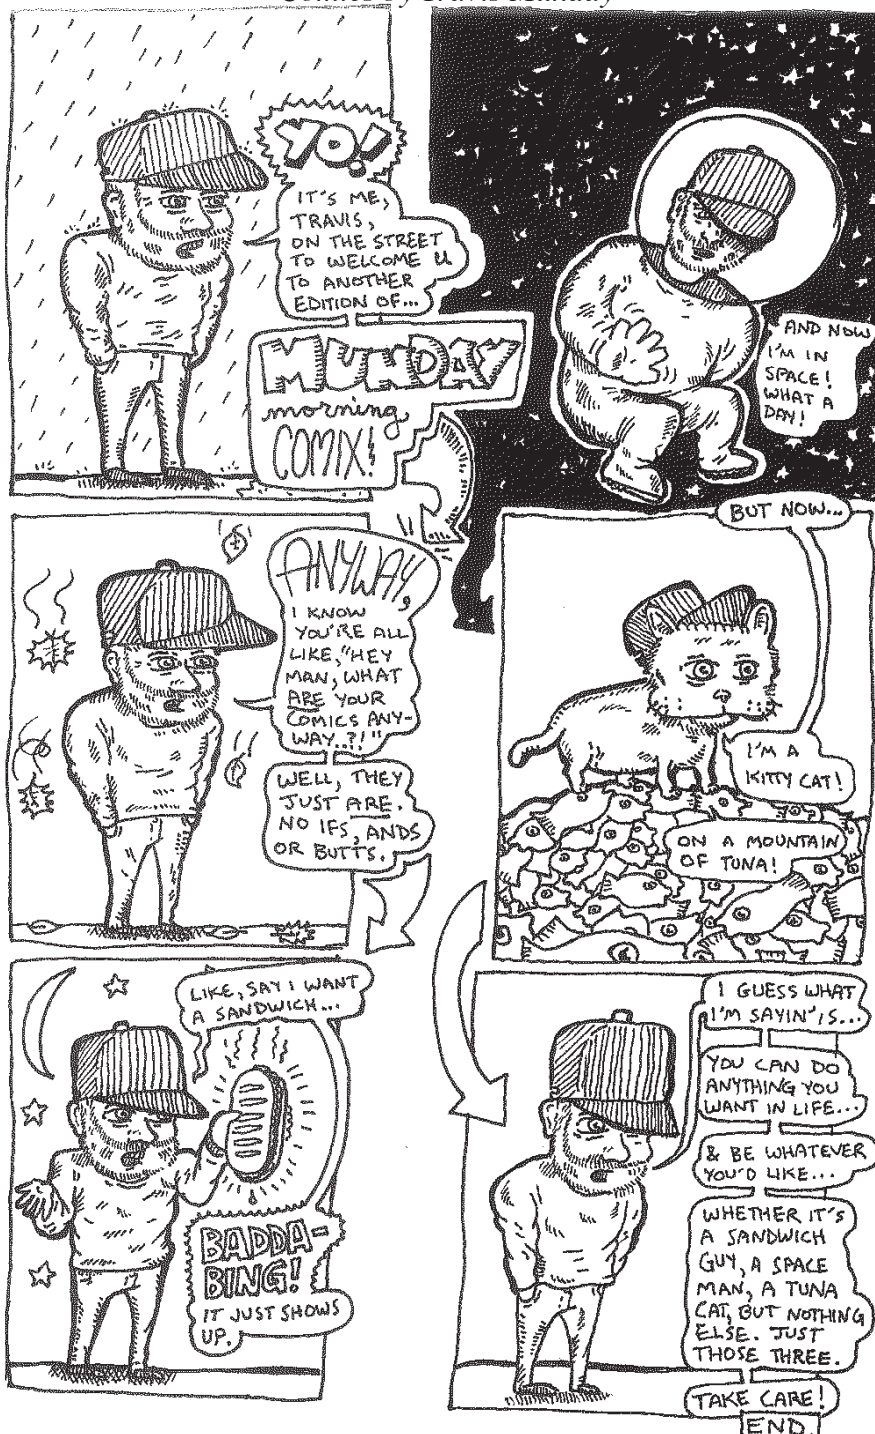 YO!
IT'S ME,
TRAVIS,
ON THE STREET
TO WELCOME U
TO ANOTHER
EDITION OF...
MUNDAY
morning
COMIX!
ANYWAY,
I KNOW
YOU'RE ALL
LIKE, "HEY
MAN, WHAT
ARE YOUR
COMICS ANY-
WAY..?!"
WELL, THEY
JUST ARE.
NO IFS, ANDS
OR BUTTS.
LIKE, SAY I WANT
A SANDWICH...
BADDA-
BING!
IT JUST SHOWS
UP.
AND NOW
I'M IN
SPACE!
WHAT A
DAY!
BUT NOW...
I'M A
KITTY CAT!
ON A MOUNTAIN
OF TUNA!
I GUESS WHAT
I'M SAYIN' IS...
YOU CAN DO
ANYTHING YOU
WANT IN LIFE...
& BE WHATEVER
YOU'D LIKE...
WHETHER IT'S
A SANDWICH
GUY, A SPACE
MAN, A TUNA
CAT, BUT NOTHING
ELSE. JUST
THOSE THREE.
TAKE CARE!
END.